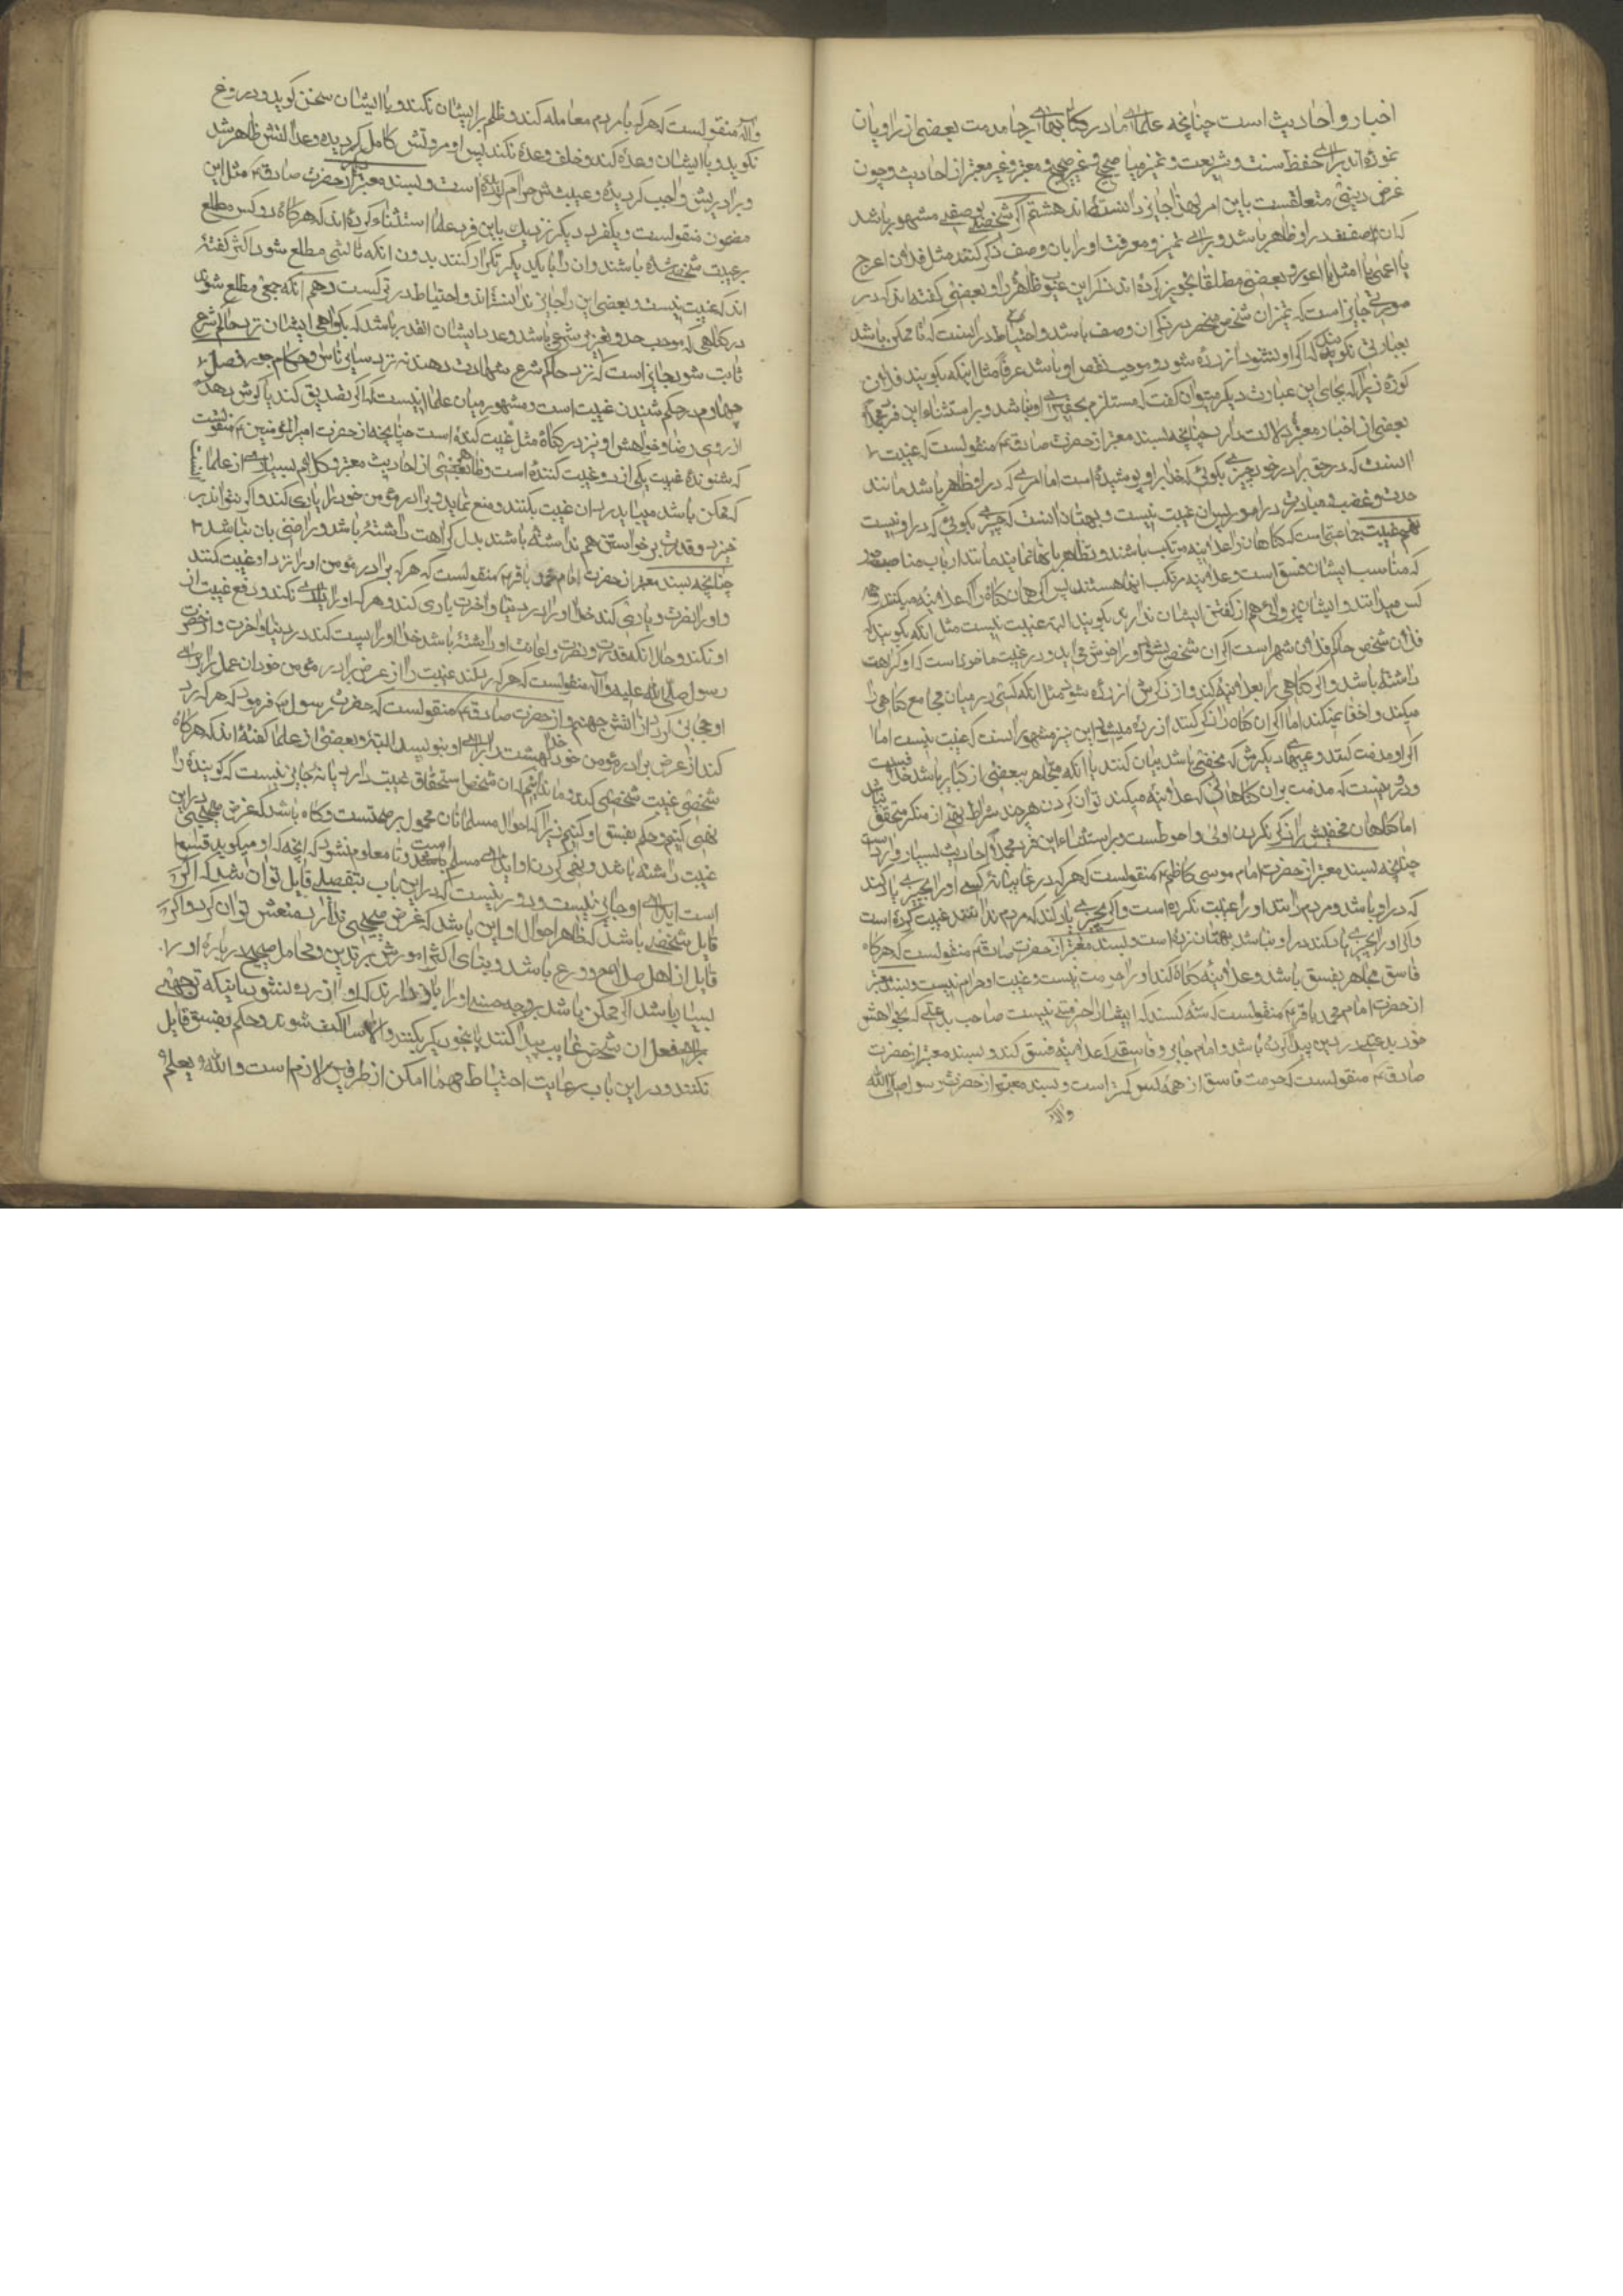 اخبار و احادیث است چنانچه علمای ما در کتابهای رجا مذمت بعضی از راویان
نموده‌اند برای حفظ سنت و شریعت و تمیز میا صحیح و غیر صحیح و معتبر و غیر معتبر از احادیث و چون
غرض دینی متعلقست باین امر لهذا جایز دانسته‌اند هشتم آنکه شخصی بوصفی مشهور باشد
که آن صفت در او ظاهر باشد و برای تمیز و معرفت او را بان وصف ذکر کنند مثل فلان اعرج
یا اعمی یا امثل یا اعور و بعضی مطلقا تجویز کرده‌اند ذکر این عیوب ظاهره را و بعضی گفته‌اند که در
صورتی جایز است که تمیز آن شخص منحصر در ذکر آن وصف باشد و احتیاط در اینست که تا ممکن باشد
بعبارتی نگویند که اگر او بشنود آزرده شود و موجب نقص او باشد عرفا مثل اینکه بگویند فلان
کوره زیرا که بجای این عبارت دیگر میتوان گفت که مستلزم تحقیری او نباشد و بر استثناء این فرد
بعضی از اخبار معتبره دلالت دارد چنانچه بسند معتبر از حضرت صادق ع منقولست که غیبت
آنست که در حق برادر خود چیزی بگوئی که خدا بر او پوشیده است اما امری که در او ظاهر باشد مانند
حدت و غضب و مبادرت در امور پس آن غیبت نیست و بهتان آنست که چیزی بگوئی که در او نیست
نهم غیبت جماعتی است که گناهان را علانیه مرتکب باشند و تظاهر بانها نمایند مانند ارباب مناصب
که مناسب ایشان فسق است و علانیه مرتکب آنها هستند پس اگر همان گناه را که علانیه میکنند و همه
کس میدانند و ایشان پروائی هم از گفتن ایشان ندارند بگویند البته غیبت نیست مثل آنکه بگویند که
فلان شخص حاکم فلان شهر است اگر آن شخص بشنود او را خوش می‌آید و در غیبت ماخوذ است که او کراهت
داشته باشد و اگر گناهی را بعلانیه کند و از ذکرش آزرده شود مثل آنکه کسی در میان مجامع گناهی را
میکند و اخفا نمیکند اما اگر آن گناه را ذکر کنند آزرده میشود این نیز مشهور آنست که غیبت نیست اما
اگر او مذمت کنند و عیبهای دیگرش که مخفی باشد بیان کنند یا آنکه متجاهر ببعضی از کبایر باشد
و دور نیست که مذمت بر آن گناهانی که علانیه میکند توان کردن هرچند شرایط نهی از منکر متحقق نباشد
اما گناهان مخفیش را ذکر نکردن اولی و احوطست و بر استثناء این فرد احادیث بسیار وارد است
چنانچه بسند معتبر از حضرت امام موسی کاظم ع منقولست که هر که در غایبانه کسی او را بچیزی یاد کند
که در او باشد و مردم دانند او را غیبت نکرده است و اگر بچیزی یاد کند که مردم ندانند غیبت کرده است
و اگر او را بچیزی یاد کند در او نباشد بهتان زده است و بسند معتبر از حضرت صادق ع منقولست که هرگاه
فاسق متجاهر بفسق باشد و علانیه گناه کند او را حرمت نیست و غیبت او حرام نیست و بسند معتبر
از حضرت امام محمد باقر ع منقولست که سه کسند که ایشان را حرمتی نیست صاحب بدعتی که بخواهش
خود بدعتی در دین پیدا کرده باشد و امام جابر و فاسقی که علانیه فسق کند و بسند معتبر از حضرت
صادق ع منقولست که حرمت فاسق از همه کس کمتر است و بسند معتبر از حضرت رسول صلی الله
و آله
و آله منقولست که هر که با مردم معامله کند و ظلم بر ایشان نکند و با ایشان سخن گوید و دروغ
نگوید و با ایشان وعده کند و خلف وعده نکند پس او مروتش کامل گردیده و عدالتش ظاهر شد
و برادریش واجب گردیده و غیبتش حرام گردیده است و بسند معتبر از حضرت صادق ع مثل این
مضمون منقولست و یکفرد دیگر نزدیك باین فرد علما استثناء کرده‌اند که هرگاه دو کس مطلع
بر غیبت شخصی شده باشند و آن را با یکدیگر تکرار کنند بدون آنکه ثالثی مطلع شود اکثر گفته
اند که غیبت نیست و بعضی این را جایز ندانسته‌اند و احتیاط در ترکست دهم آنکه جمعی مطلع شوند
در گناهی که موجب حد و تعزیر شرعی باشد و عدد ایشان آنقدر باشد که بگواهی ایشان نزد حاکم شرع
ثابت شود جایز است که نزد حاکم شرع شهادت دهند نه نزد سایر ناس و حکام جور فصل
چهارم در حکم شنیدن غیبت است و مشهور میان علما اینست که اگر تصدیق کند یا گوش دهد
از روی رضا و خواهش او نیز در گناه مثل غیبت کننده است چنانچه از حضرت امیر المؤمنین ع منقولست
که شنونده غیبت یکی از دو غیبت کننده است و ظاهر بعضی از احادیث معتبره و کلام بسیاری از علما
که ممکن باشد میباید رد آن غیبت بکنند و منع نماید و برادر مؤمن خود را یاری کند و اگر نتواند بر
خیزد و قدرت برخواستن هم نداشته باشند بدل کراهت داشته باشد و راضی بان نباشد
چنانچه بسند معتبر از حضرت امام محمد باقر ع منقولست که هر که برادر مؤمن او را نزد او غیبت کنند
و او را نصرت و یاری کند خدا او را در دنیا و آخرت یاری کند و هر که او را یاری نکند و دفع غیبت از
او نکند و حال آنکه قدرت و نصرت و اعانت او داشته باشد خدا او را پست کند در دنیا و آخرت و از حضرت
رسول صلی الله علیه و آله منقولست که هر که رد کند غیبت را از عرض برادر مؤمن خود آن عمل از برای
او حجابی گردد از آتش جهنم و از حضرت صادق ع منقولست که حضرت رسول ص فرمود که هر که رد
کند از عرض برادر مؤمن خود خدا بهشت را از برای او بنویسد البته و بعضی از علما گفته‌اند که هرگاه
شخصی غیبت شخصی کند و ما ندانیم که آن شخص استحقاق غیبت دارد یا نه جایز نیست که گوینده را
نهی کنیم و حکم بفسق او کنیم زیرا که احوال مسلمانان محمول بر صحتست و گاه باشد که غرض صحیحی در این
غیبت داشته باشد و نهی کردن او ایذای مسلم است و تا معلوم نشود که آنچه که او میگوید
است ایذای او جایز نیست و دور نیست که در این باب بتفصیلی قایل توان شد که اگر
قایل شخصی باشد که ظاهر احوال او این باشد که غرض صحیحی ندارد منعش توان کرد و اگر
قایل از اهل صلاح و ورع باشد و بنای اکثر امورش بر تدین و محامل صحیحه درباره او
بسیار باشد اگر ممکن باشد بر وجه حسنی او را باز دارند که او آزرده نشود یا اینکه توجیهی
برای فعل آن شخص غایب پیدا کنند یا بنحو دیگر بکنند و الا ساکت شوند و حکم بفسق قایل
نکنند و در این باب رعایت احتیاط مهما امکن از طرفین لازم است و الله یعلم